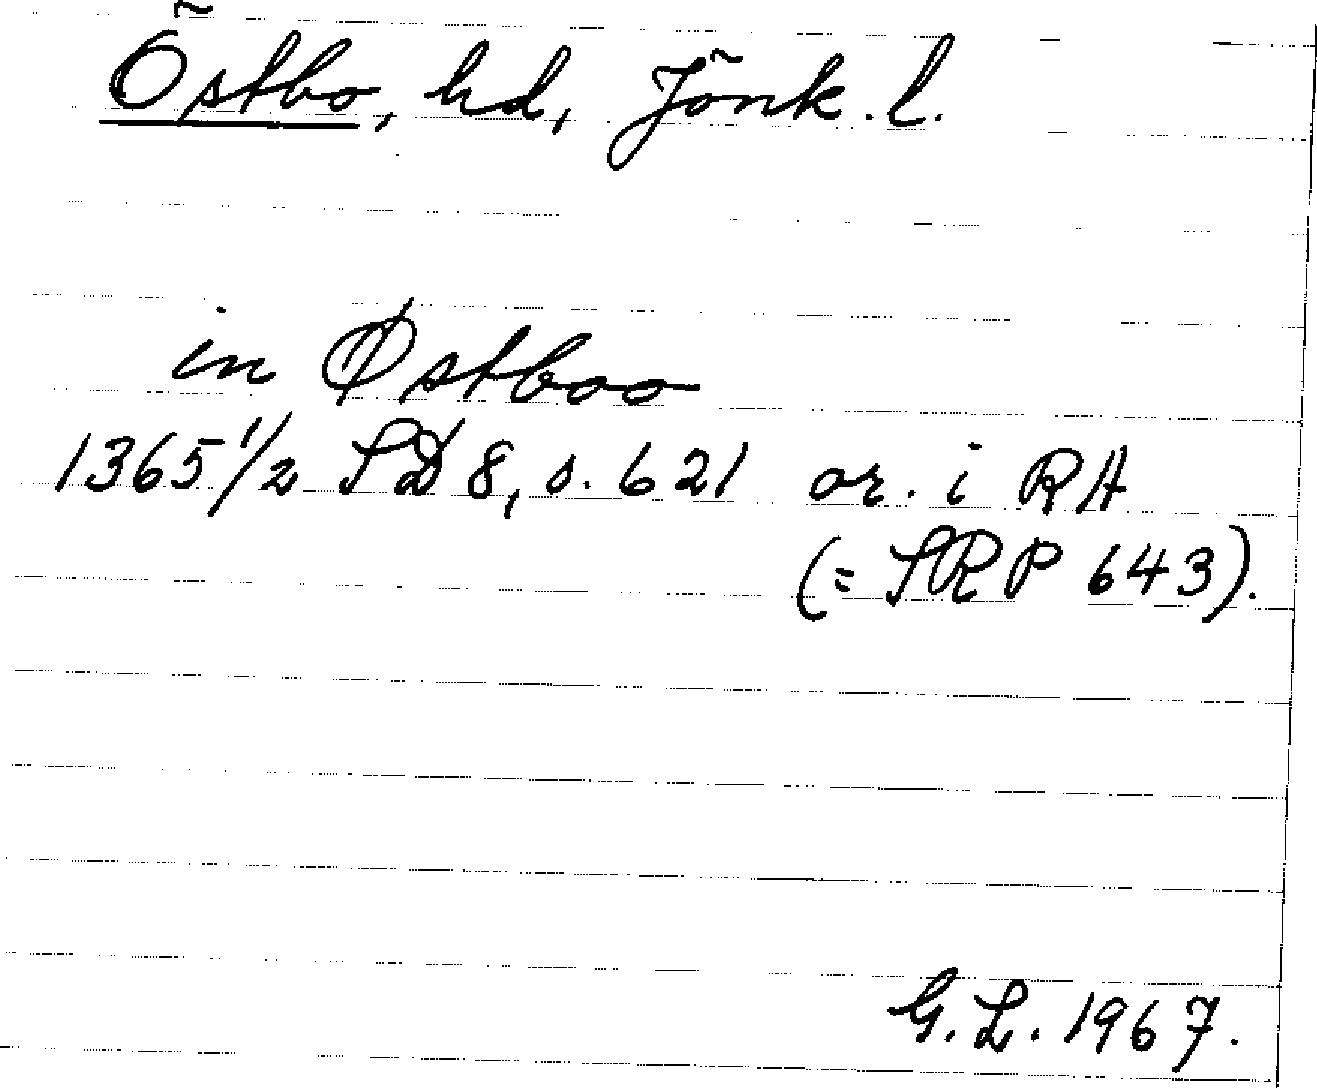 Östbo, hd, Jönk. l.
in Østboo
1365 1/2 SD 8, s. 621 or. i RA
(= SRP 643).
G. L. 1967.